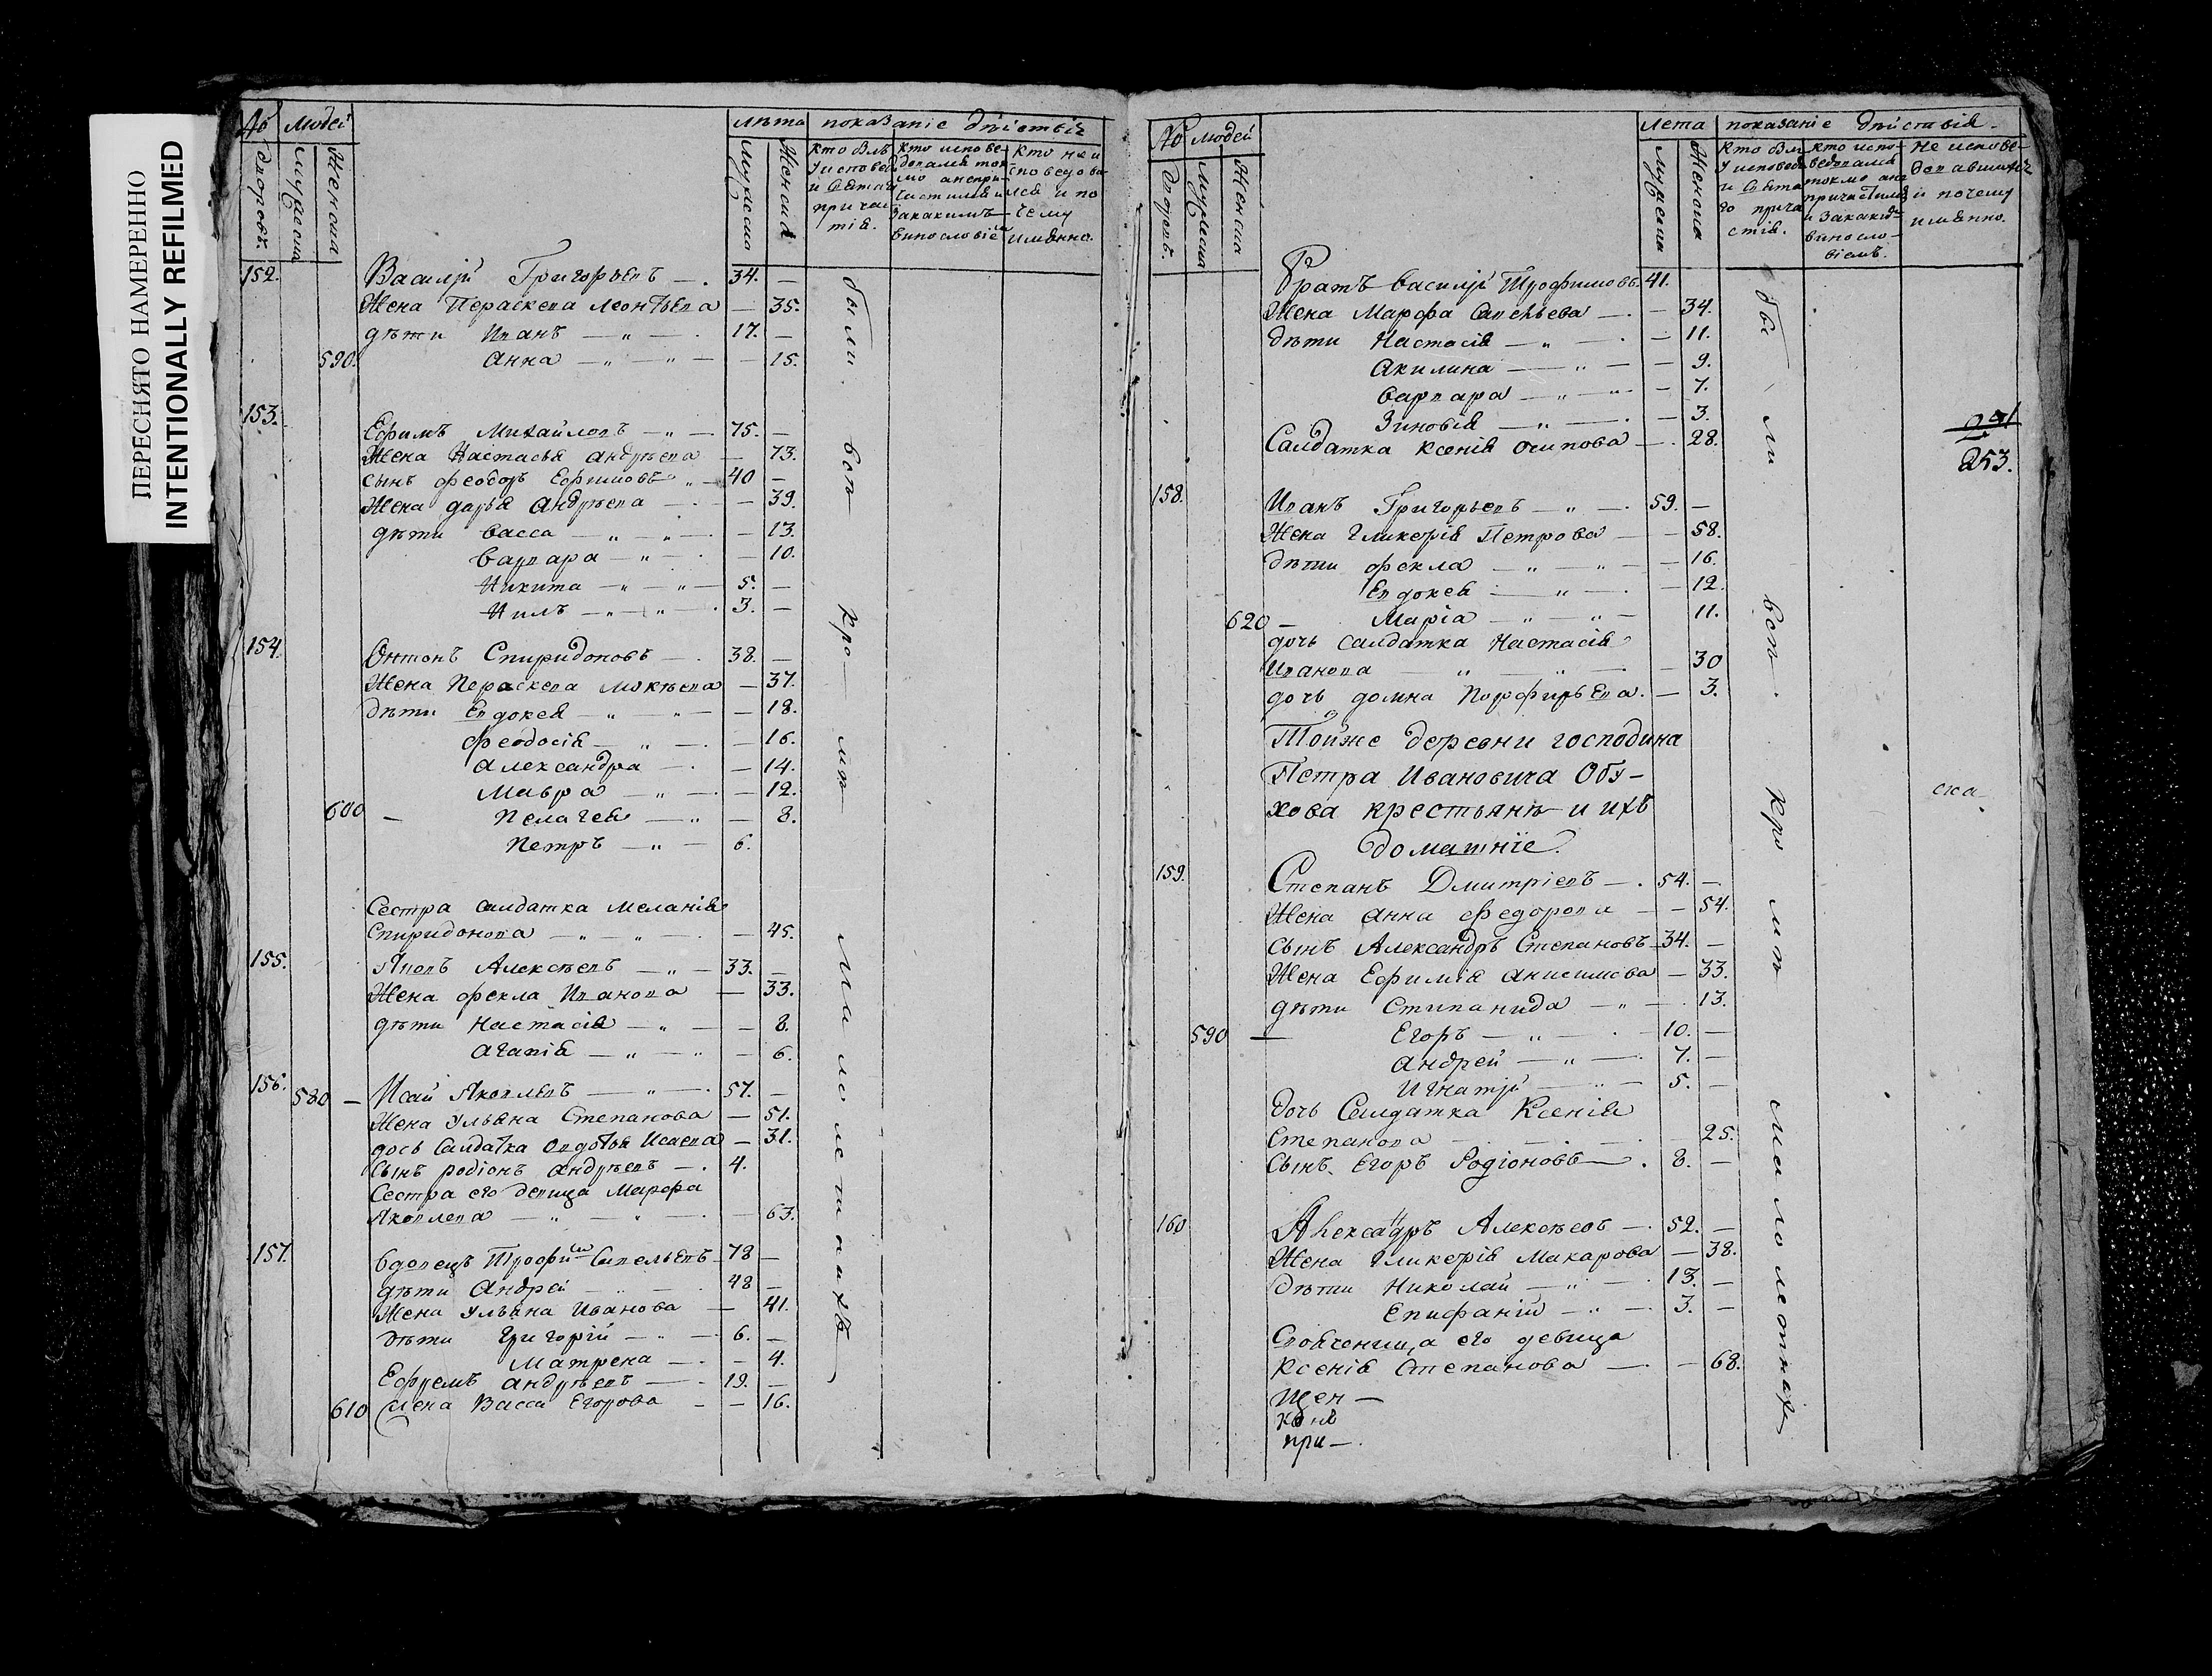 ПЕРЕСНЯТО НАМЕРЕННО
INTENTIONALLY REFILMED
№ людей лѣта показаніе дѣйствія
дворовъ. мужеска женска мужеска женска
кто былъ у исповеди и святаго причастія.
кто исповедовался токмо а непричастился и закакимъ винословіемъ
кто не исповедовался и почему имянно.
152. Василій Григорьевъ — 34. —
Жена Пераскева Леонтьева — 35.
дѣти Иванъ — 17. —
590. Анна — 15.
153.
Ефимъ Михайловъ — 75. —
Жена Настасья Андрѣева — 73.
сынъ Феодоръ Ефимовъ — 40 —
Жена дарья Андрѣева — 39.
дѣти Васса — 13.
Варвара — 10.
Никита — 5. —
Нилъ — 3. —
154. Антонъ Спиридоновъ — 38. —
Жена Пераскева Мокѣева — 37.
дѣти Евдокея — 18.
Феодосія — 16.
Александра — 14.
Мавра — 12.
600 — Пелагея — 8.
Петръ — 6.
Сестра салдатка Меланія
Спиридонова — 45.
155. Яковъ Алексѣевъ — 33. —
Жена фекла Иванова — 33.
дѣти Настасія — 8.
Агапія — 6.
156. 580 — Исай Яковлевъ — 57. —
Жена Ульяна Степанова — 51.
дочь Салдатка Овдотья Исаева — 31.
Сынъ родіонъ Андрѣевъ — 4.
Сестра его девица Марфа
Яковлева — 63.
157. вдовецъ Трофимъ Савельевъ 78 —
дѣти Андрей 48 —
Жена Ульяна Иванова — 41.
дѣти Григорій — 6. —
Матрена — 4.
Ефремъ Андрѣевъ — 19. —
610 Жена Васса Егорова — 16.
были вси кромѣ малолетнихъ
№ людей лета показаніе дѣйствія.
дворовъ. мужеска женска мужеска женска
кто былъ у исповеди и святаго причастія.
кто исповедовался токмо а непричастился и закакимъ винословіемъ.
не исповедовавшихся и почему имянно.
Братъ Василій Трофимовъ. 41.
Жена Марфа Савельева — 34.
дѣти Настасія — 11.
Акилина — 9.
Варвара — 7.
Зиновія — 3.
Салдатка Ксенія Осипова — 28.
253.
158. Иванъ Григорьевъ — 59. —
Жена Гликерія Петрова — 58.
дѣти фекла — 16.
Евдокея — 12.
620 — Марія — 11.
дочь салдатка Настасія
Иванова — 30
дочь домна Порфирьева. — 3.
Тойже деревни господина
Петра Ивановича Обу-
хова крестьянѣ и ихъ
домашніе.
ска
159. Степанъ Дмитріевъ — 54. —
Жена Анна Федорова — 54.
Сынъ Александръ Степановъ 34. —
Жена Ефимія Анисимова — 33.
дѣти Стипанида — 13.
590 — Егоръ — 10. —
Андрей — 7. —
Игнатій — 5. —
дочь Салдатка Ксенія
Степанова — 25.
Сынъ Егоръ Родіоновъ — 8. —
160 Александръ Алексѣевъ — 52. —
Жена Гликерія Макарова — 38.
дѣти Николай — 13. —
Епифаній — 3. —
его девица
Ксенія Степанова — 68.
щен —
при —
были вси кромѣ малолетнихъ